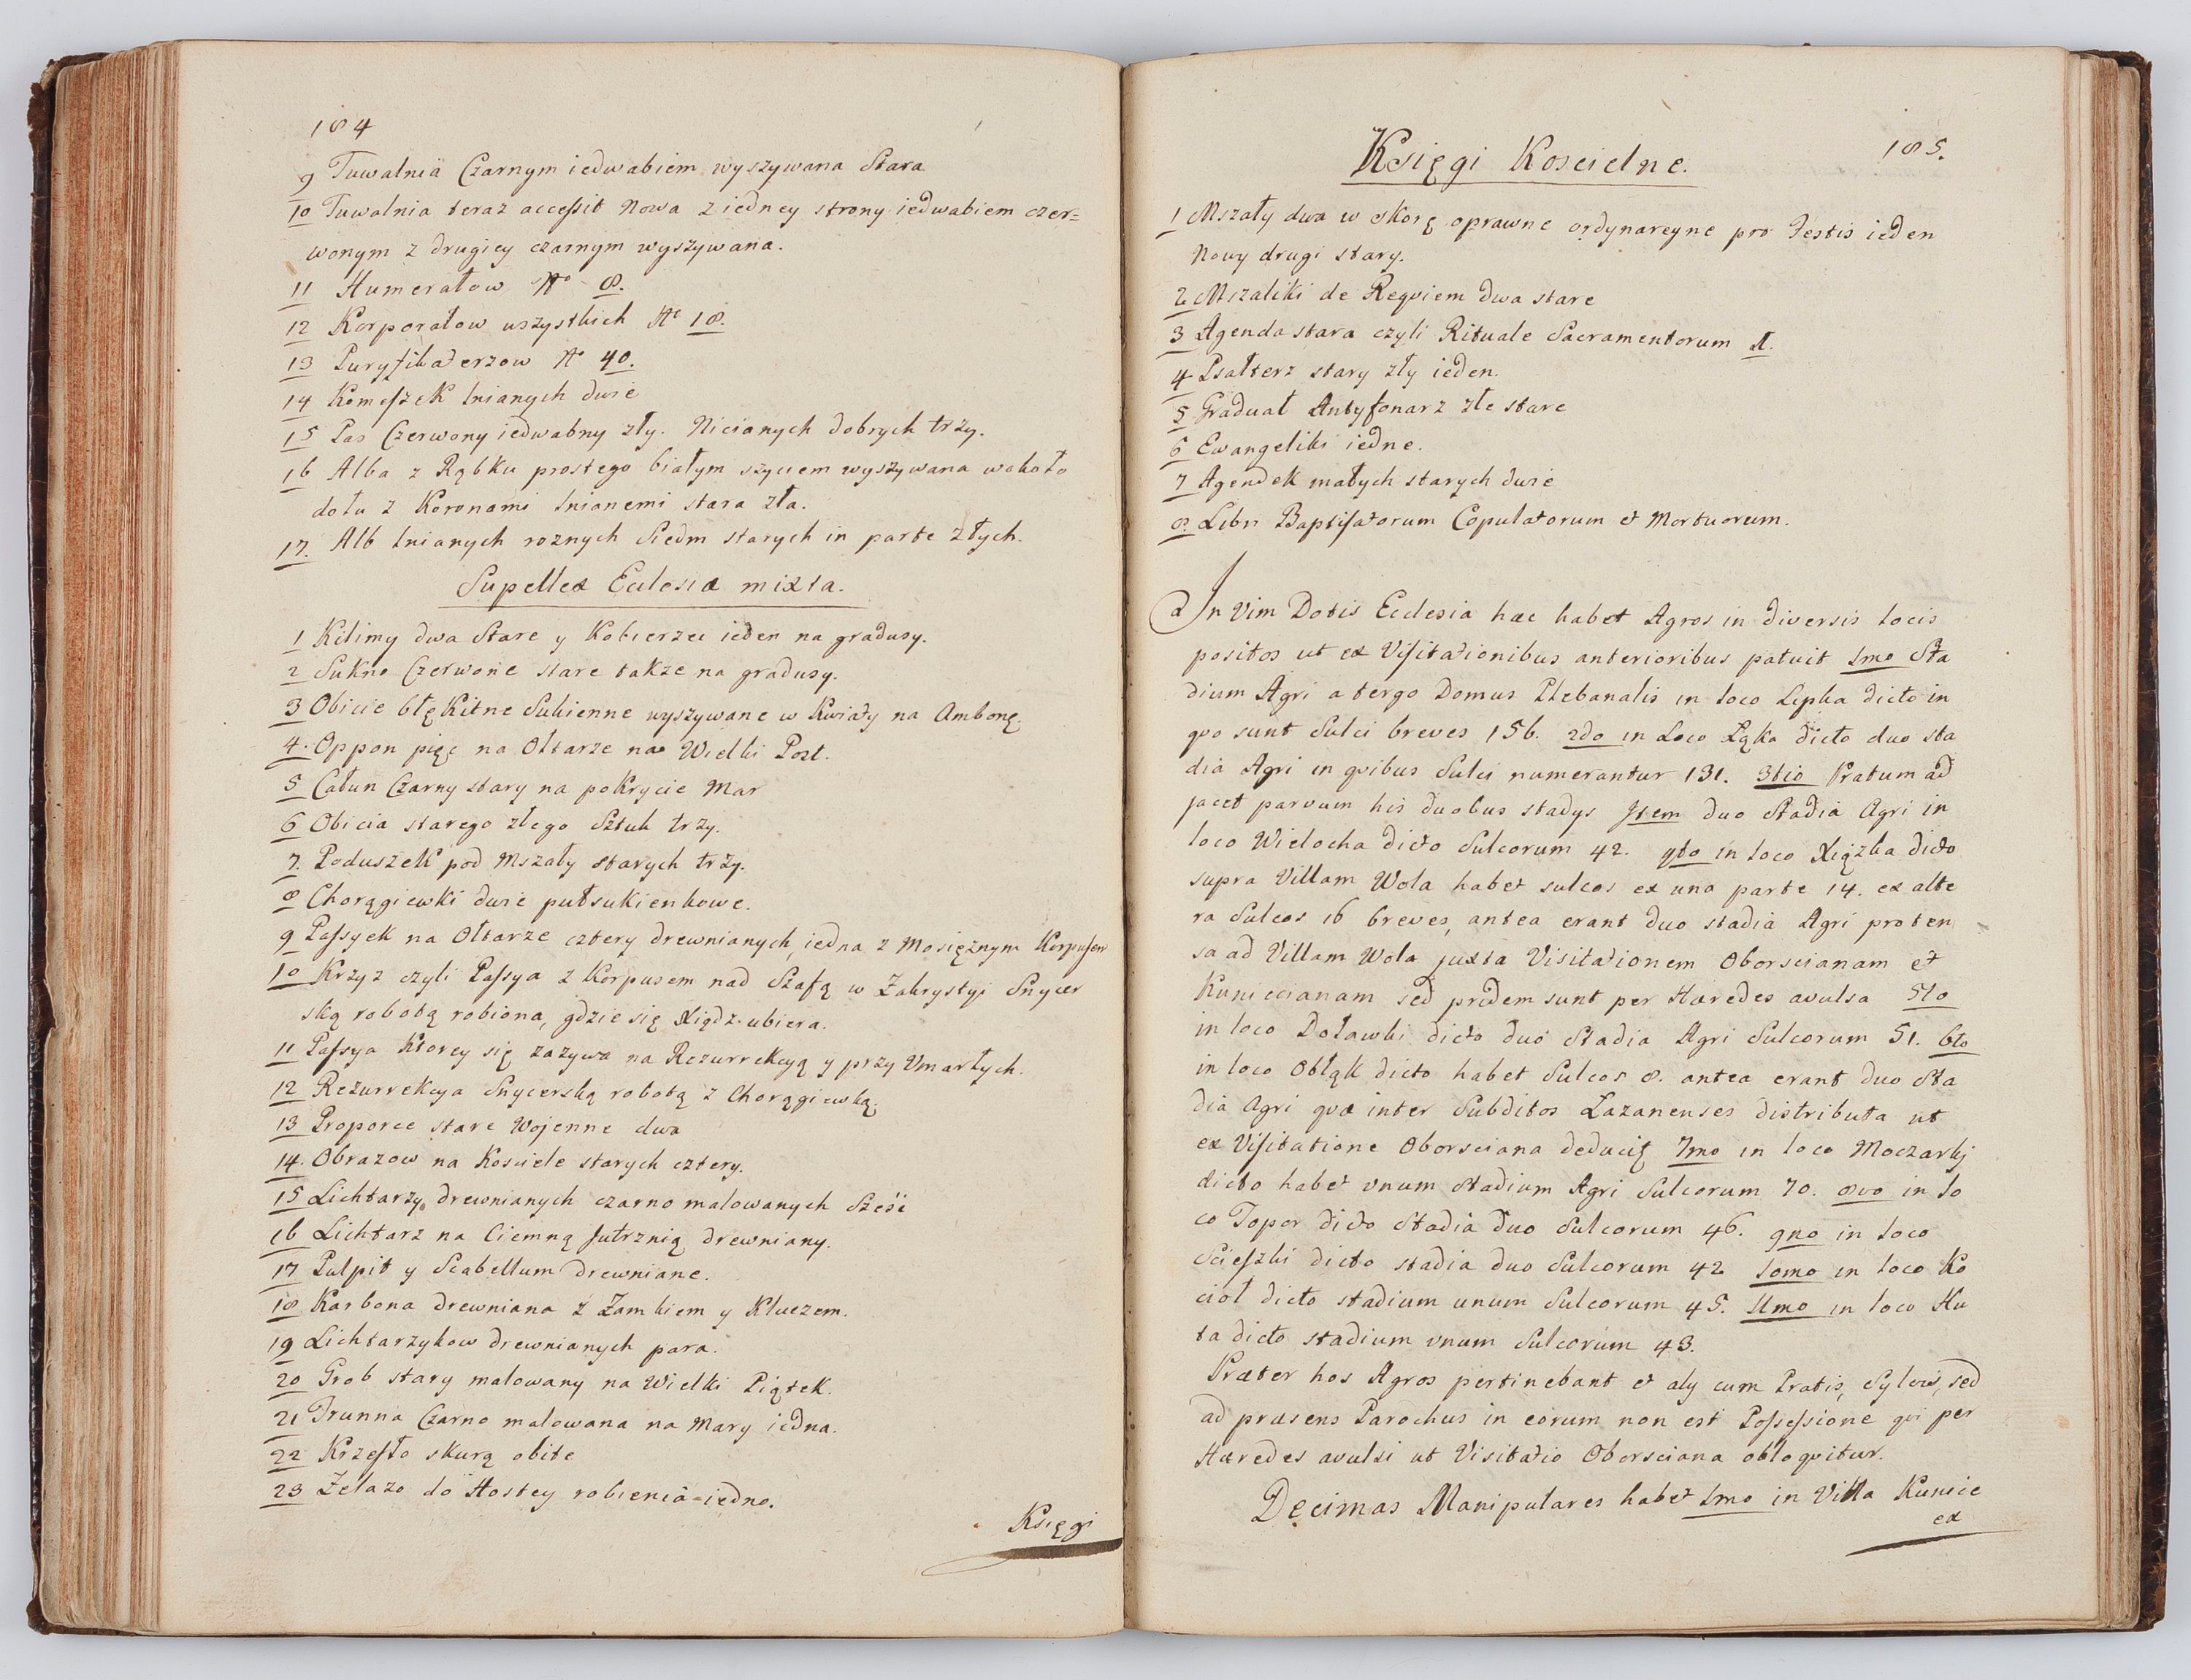 184
9 Tuwalnia Czarnym iedwabiem wyszywana Stara
10 Tuwalnia teraz accessit Nowa z iedney strony iedwabiem czer=
wonym z drugiey czarnym wyszywana.
11 Humerałow No 8.
12 Korporałow wszystkich No 18.
13 Puryfikaterzow No 40.
14 Komeszek lnianych dwie
15 Pas Czerwony iedwabny zły. Nicianych dobrych trzy.
16 Alba z Rąbku prostego białym szyciem wyszywana wokoło
dołu z Koronami lnianemi stara zła.
17. Alb lnianych roznych Siedm starych in parte złych.
Supellex Eclesiæ mixta.
1 Kilimy dwa Stare y Kobierzec ieden na gradusy.
2 Sukno Czerwone stare także na gradusy.
3 Obicie błękitne Sukienne wyszywane w Kwiaty na Ambonę.
4. Oppon pięc na Ołtarze na Wielki Post.
5 Całun Czarny stary na pokrycie Mar
6 Obicia starego złego Sztuk trzy.
7. Poduszek pod Mszały starych trzy.
8 Chorągiewki dwie pułsukienkowe.
9 Passyek na Ołtarze cztery drewnianych, iedna z Mosiężnym Korpusem
10 Krzyz czyli Passya z Korpusem nad Szafą w Zakrystyi Snycer
ską robotą robiona, gdzie się Xiądz ubiera.
11 Passya Ktorey się zazywa na Rezurrekcyą y przy Umarłych.
12 Rezurrekcya Snycerską robotą z Chorągiewką.
13 Proporce stare Wojenne dwa
14. Obrazow na Kosciele starych cztery.
15 Lichtarzy drewnianych czarno malowanych Sześć
16 Lichtarz na Ciemną Jutrznią drewniany.
17 Pulpit y Scabellum drewniane.
18 Karbona drewniana z Zamkiem y Kluczem.
19 Lichtarzykow drewnianych para.
20 Grob stary malowany na Wielki Piątek.
21 Trunna Czarno malowana na Mary iedna.
22 Krzesło skurą obite
23 Zelazo do Hostey robienia iedno.
Księgi
185.
Księgi Koscielne.
1 Mszały dwa w skorę oprawne ordynareyne pro Festis ieden
Nowy drugi stary.
2 Mszaliki de Reqviem dwa stare
3 Agenda stara czyli Rituale Sacramentorum 1.
4 Psałterz stary zły ieden.
5 Graduał Antyfonarz złe stare
6 Ewangeliki iedne.
7 Agendek małych starych dwie
8. Libri Baptisatorum Copulatorum et Mortuorum.
In Vim Dotis Ecclesia hæc habet Agros in diversis locis
positos ut ex Visitationibus anterioribus patuit 1mo Sta
dium Agri a tergo Domus Plebanalis in loco Lipka dicto in
qvo sunt Sulci breves 156. 2do in Loco Łąka dicto duo sta
dia Agri in qvibus Sulci numerantur 131. 3tio Pratum ad
jacet parvum his duobus stadys Item duo Stadia Agri in
loco Wielocha dicto Sulcorum 42. 4to in loco Xiążka dicto
supra Villam Wola habet sulcos ex una parte 14. ex alte
ra Sulcos 16 breves, antea erant duo stadia Agri proten
sa ad Villam Wola juxta Visitationem Oborscianam et
Kuniccianam sed pridem sunt per Hæredes avulsa 5to
in loco Doławki dicto duo Stadia Agri Sulcorum 51. 6to
in loco Obłąk dicto habet Sulcos 8. antea erant duo Sta
dia Agri qvæ inter Subditos Łazanenses distributa ut
ex Visitatione Oborsciana 7mo in loco Moczarki
dicto habet unum Stadium Agri Sulcorum 70. 8vo in lo
co Topor dicto Stadia duo Sulcorum 46. 9no in loco
Scieszki dicto stadia duo Sulcorum 42 10mo in loco Ko
ciol dicto stadium unum Sulcorum 45. 11mo in loco Hu
ta dicto stadium unum Sulcorum 43.
Præter hos Agros pertinebant et aly cum Pratis, Sylvis, sed
ad præsens Parochus in eorum non est Possessione qvi per
Hæredes avulsi ut Visitatio Oborsciana obloqvitur.
Decimas Manipulares habet 1mo in Villa Kunice
ex